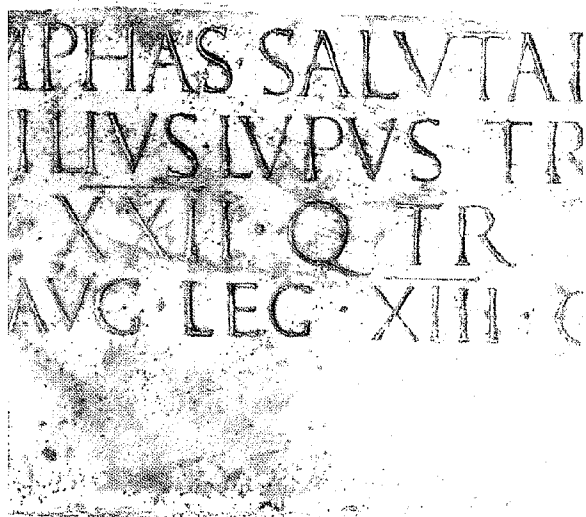 MPHAS SALVTAR
ILIVS·LVPVS TR
XXII·Q TR
AVG·LEG·XIII·G